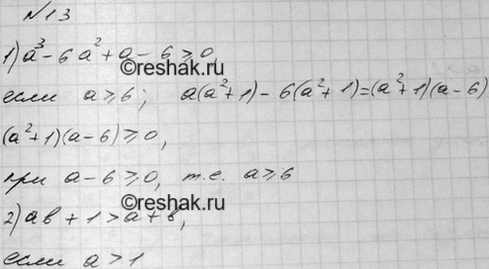 №13
1) a³ - 6a² + a - 6 ≥ 0,
©reshak.ru
если a ≥ 6; a(a²+1) - 6(a²+1) = (a²+1)(a-6)
(a²+1)(a-6) ≥ 0,
при a-6 ≥ 0, т.е. a ≥ 6
©reshak.ru
2) ab + 1 > a + b,
если a > 1